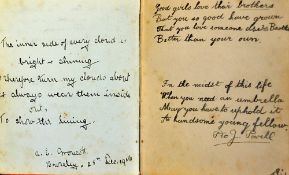 The inner side of every cloud is
bright & shining
Therefore turn my clouds about
& always wear them inside
out,
To show the lining.
25th Dec. 1916
Good girls love their brothers
But you so good have grown
That you love someone else's Brother
Better than your own.
In the midst of this life
When you need an umbrella
May you have to uphold it
A handsome young fellow.